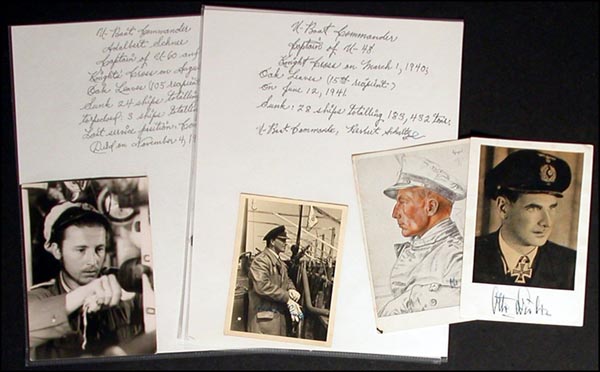 U-Boat Commander
Adelbert Schnee
Captain of U-60 and
Knights Cross on August
Oak Leaves (105 recipient
Sunk 24 ships totalling
torpedoed 3 ships totalling
Last service position:
Died on November 4, 1
U-Boat Commander
Captain of U-48
Knight Cross on March 1, 1940,
Oak Leaves (15th recipient)
on June 12, 1941.
Sunk: 28 ships totalling 183,432 tons.
U-Boat Commander, Herbert Schultze